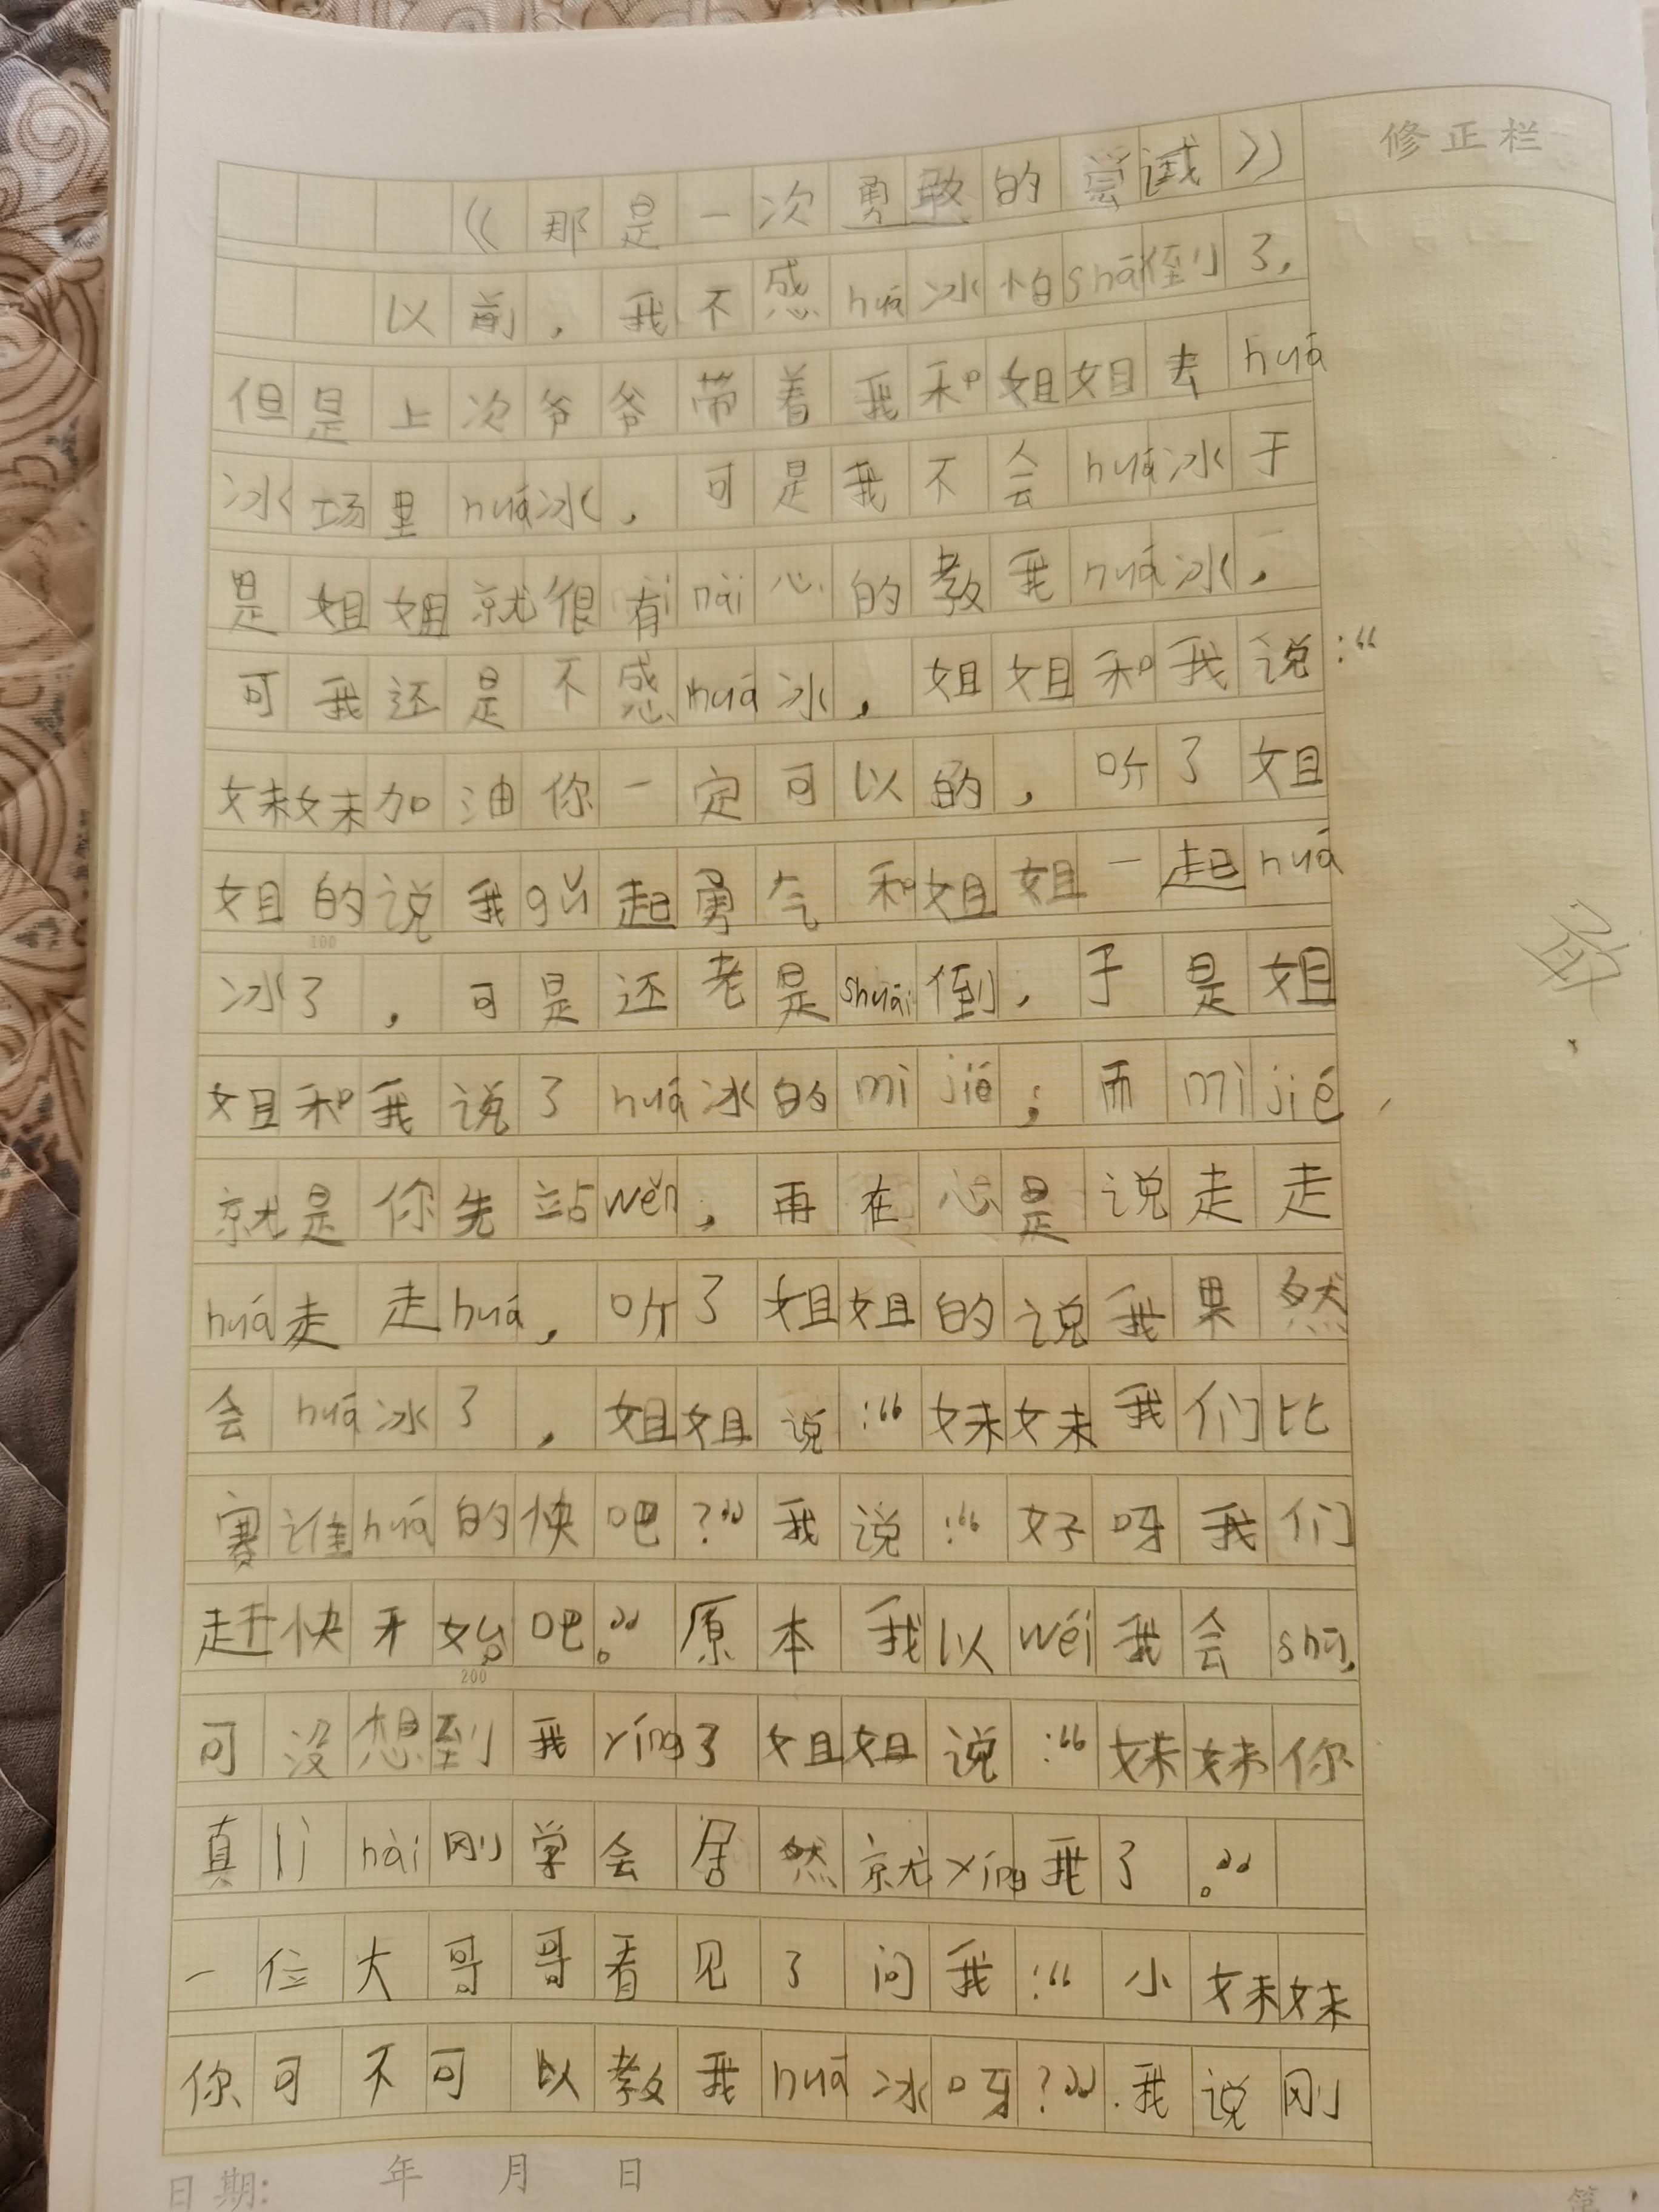 修正栏
《那是一次勇敢的尝试》
以前，我不感huá冰怕shuāi倒了，
但是上次爷爷带着我和姐姐去huá
冰场里huá冰，可是我不会huá冰于
是姐姐就很有nài心的教我huá冰，
可我还是不感huá冰，姐姐和我说：“
妹妹加油你一定可以的，听了姐
姐的说我gǔ起勇气和姐姐一起huá
冰了，可是还老是shuāi倒，于是姐
姐和我说了huá冰的mì jié；而mì jié，
就是你先站wěn，再在心是说走走
huá走走huá，听了姐姐的说我果然
会huá冰了，姐姐说：“妹妹我们比
赛谁huá的快吧？”我说：“好呀我们
赶快开始吧。”原本我以wéi我会shū，
可没想到我yíng了姐姐说：“妹妹你
真lì hài刚学会居然就yíng我了。”
一位大哥哥看见了问我：“小妹妹
你可不可以教我huá冰呀？”.我说刚
敢
100
200
日期： 年 月 日
第